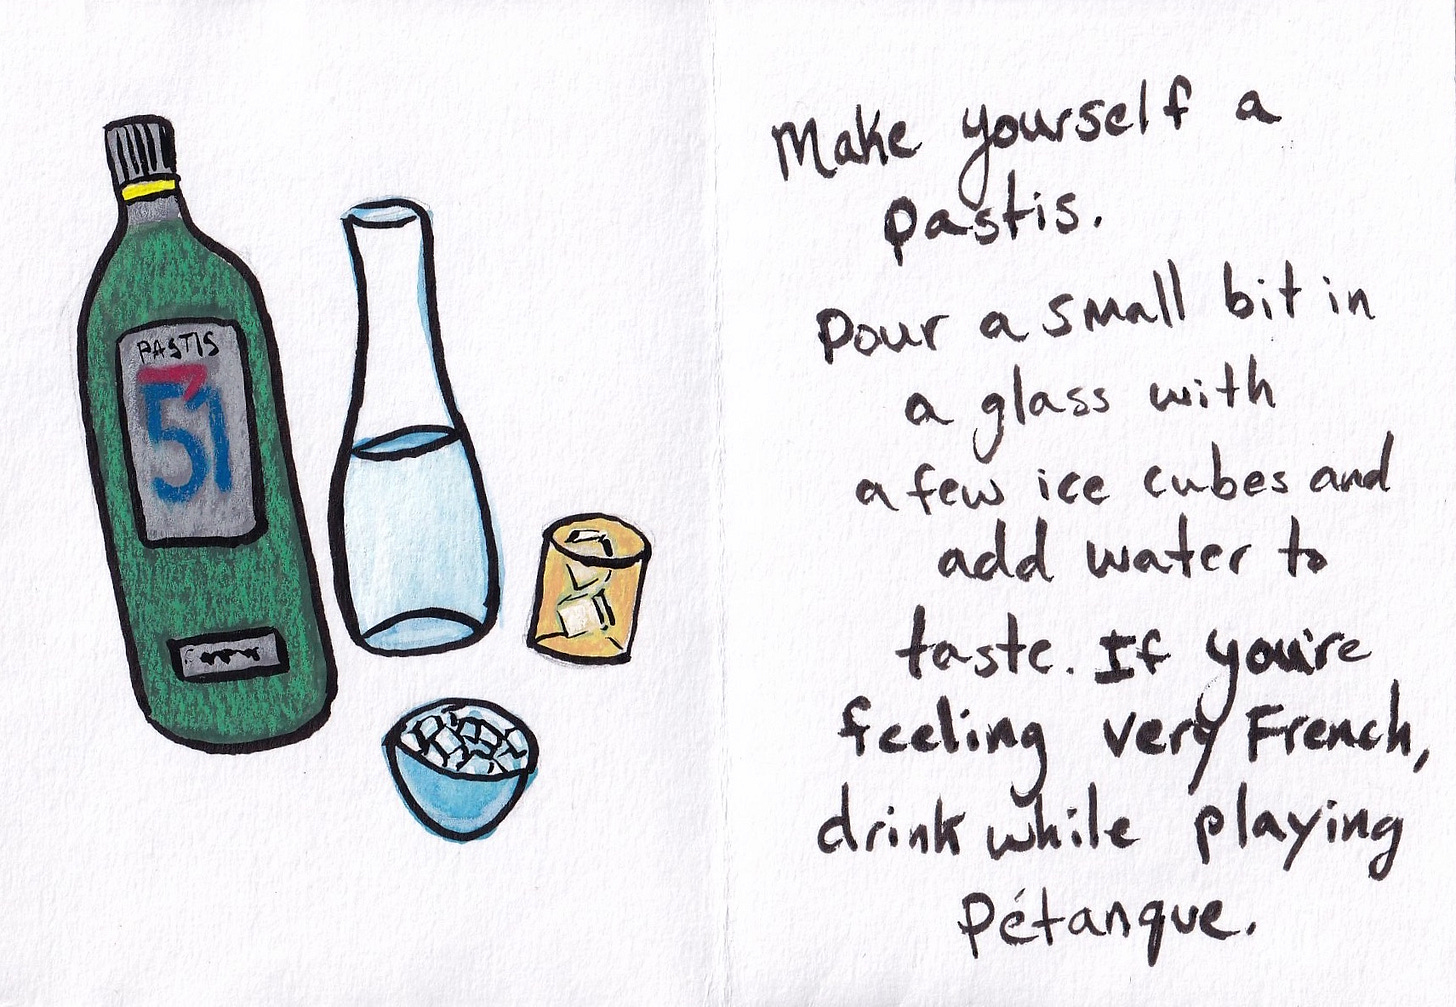 PASTIS
51
Make yourself a
pastis.
Pour a small bit in
a glass with
a few ice cubes and
add water to
taste. If you're
feeling very French,
drink while playing
Pétanque.